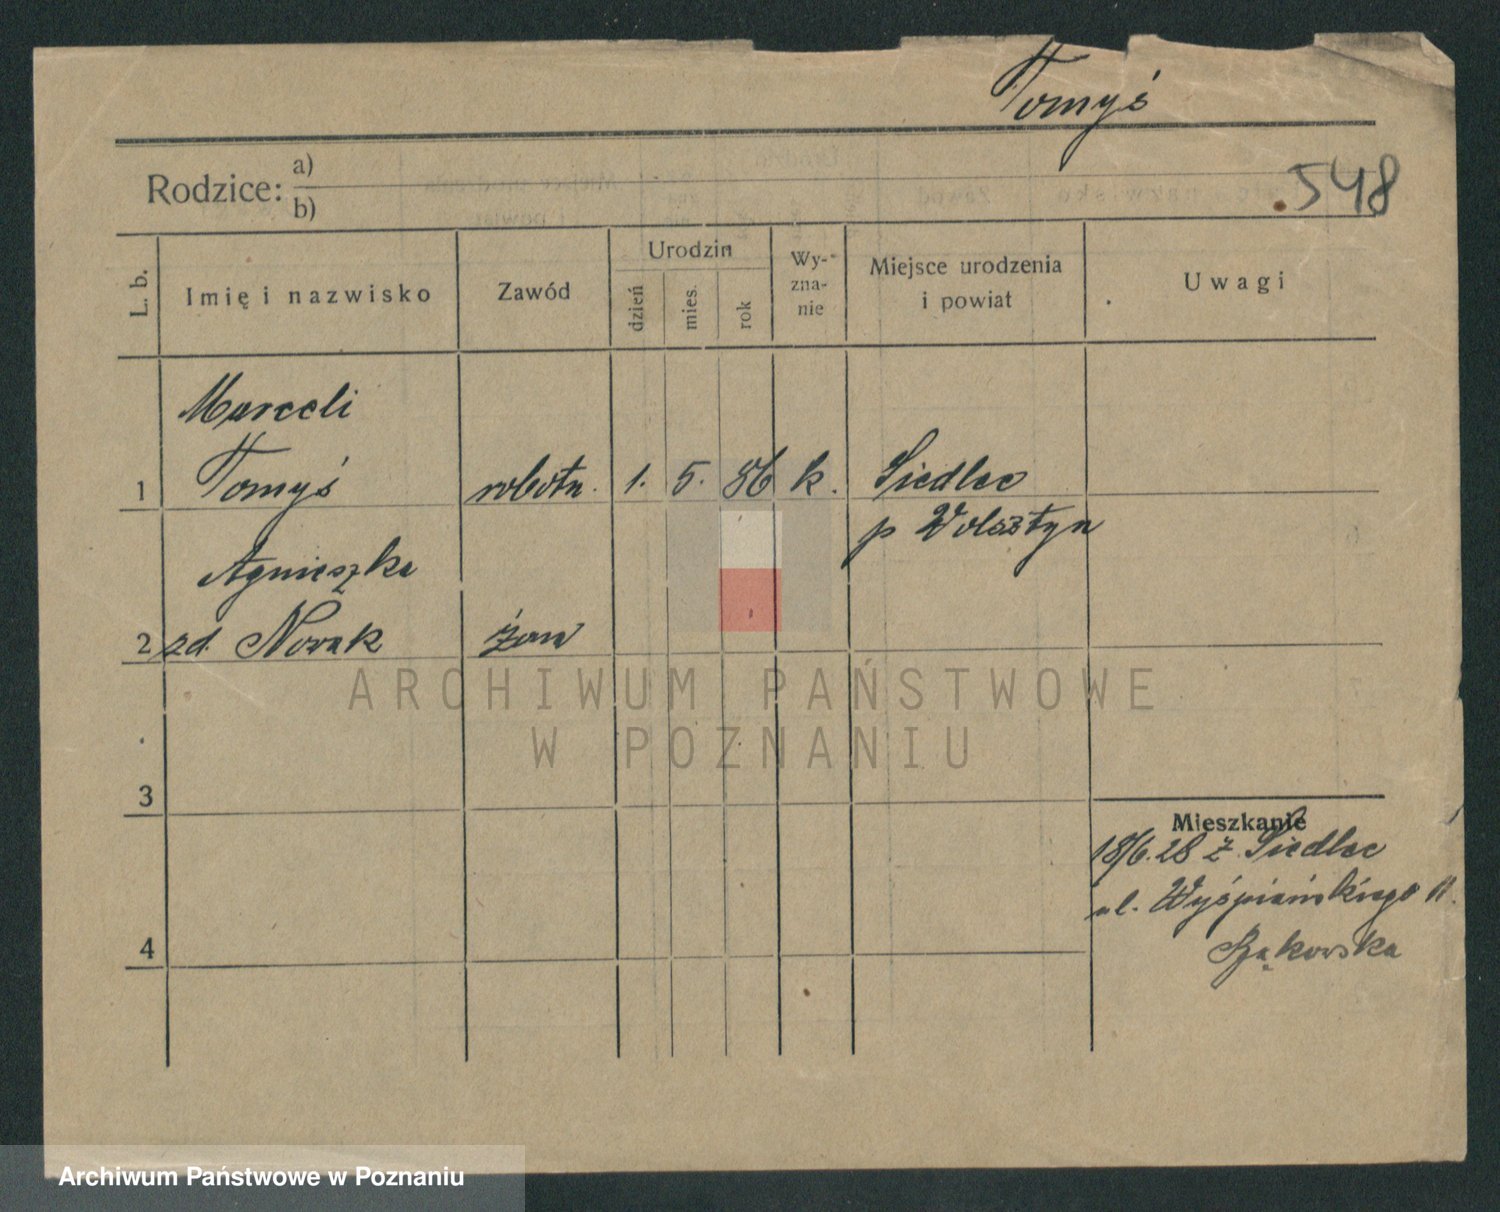 Tomyś
Rodzice: a)
b)
548
L. b.
Imię i nazwisko
Zawód
Urodzin
dzień
mies.
rok
Wy-
zna-
nie
Miejsce urodzenia
i powiat
Uwagi
Marceli
1 Tomyś robotn. 1. 5. 86 k. Siedlec
p Wolsztyn
Agnieszka
2 zd. Nowak żona
ARCHIWUM PAŃSTWOWE
W POZNANIU
3
Mieszkanie
18/6.28 z Siedlec
ul. Wyśpiańskiego 11.
4
Archiwum Państwowe w Poznaniu